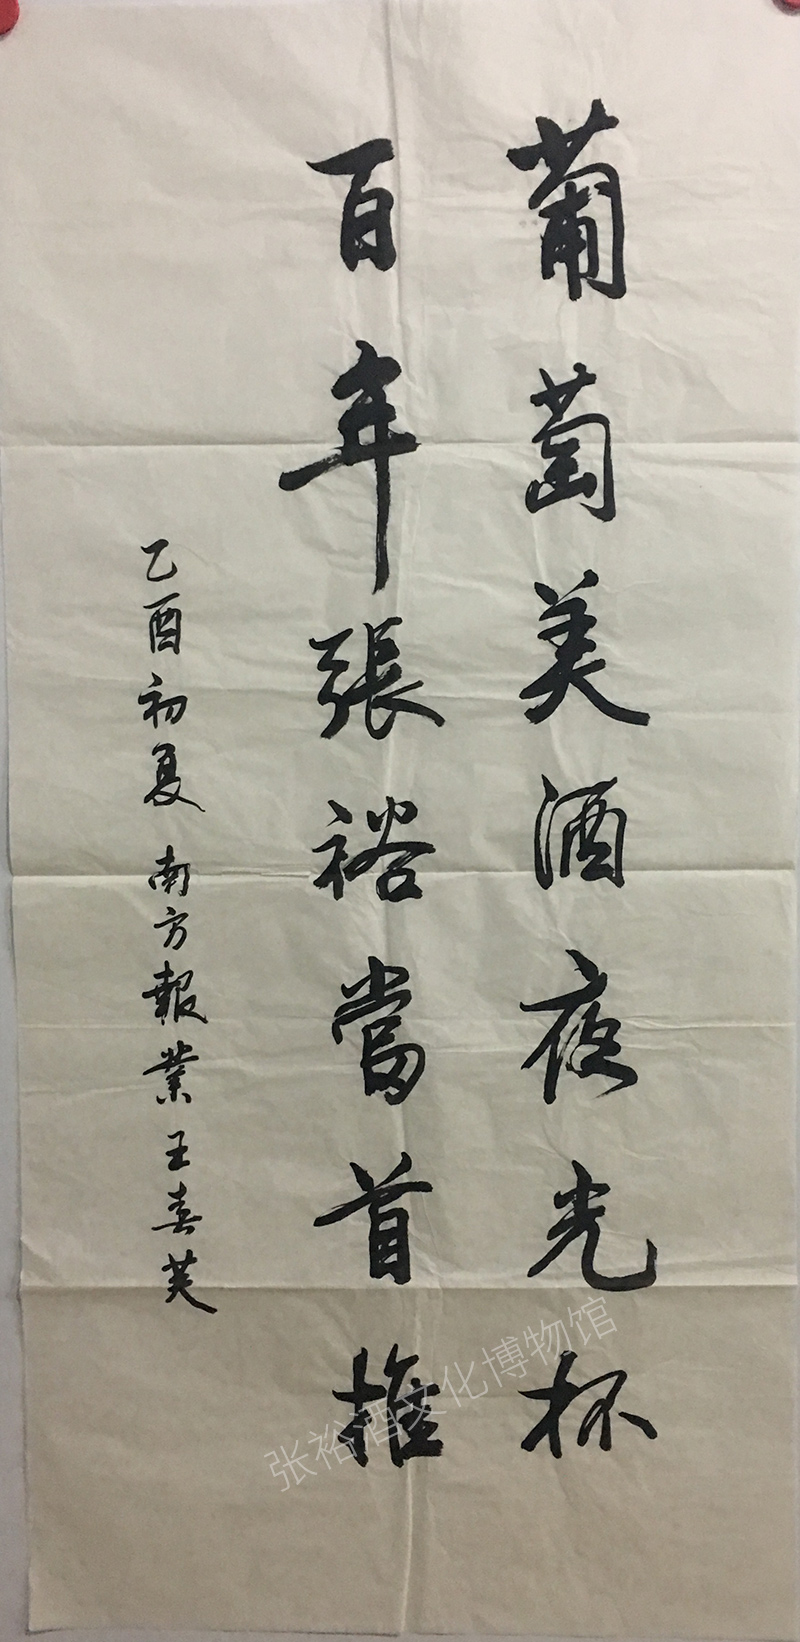 葡萄美酒夜光杯
百年張裕當首推
乙酉初夏 南方報業王春芙
张裕酒文化博物馆